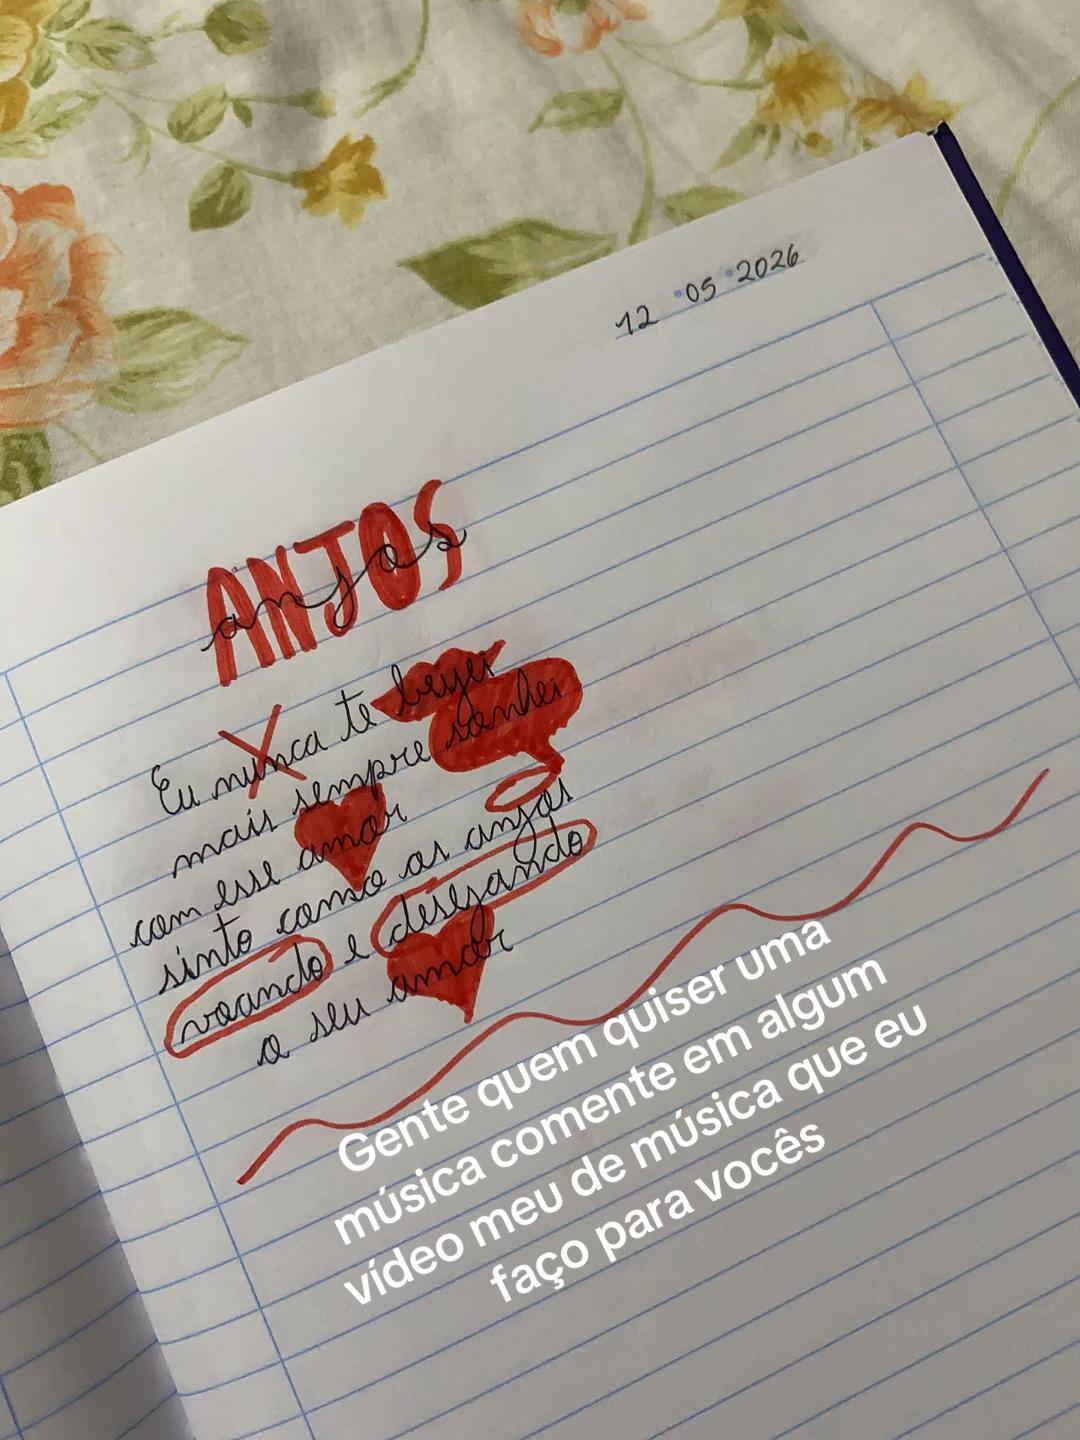 12 05 2026
ANJOS
anjos
Eu nunca te beijei
mais sempre sonhei
com esse amor
sinto como os anjos
voando e desejando
o seu amor
Gente quem quiser uma
música comente em algum
vídeo meu de música que eu
faço para vocês